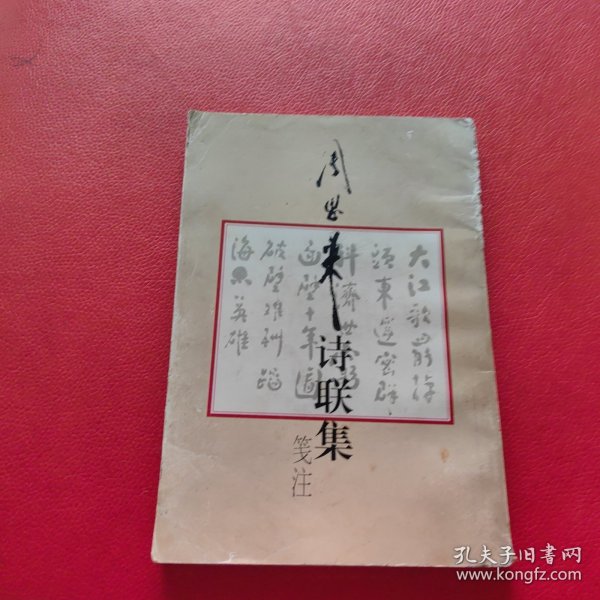 周恩来
诗联集
笺注
大江歌罷掉
頭東邃密群
科濟世窮
面壁十年圖
破壁难酬蹈
海亦英雄
孔夫子旧书网
www.kongfz.com